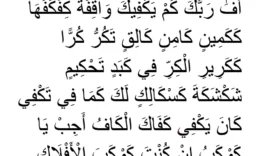 اف رَبُّكَ كَمْ يَكْفِيكَ وَاقِفَةً كِفْكَفَهَا
كَكَمِينٍ كَامِنٍ كَالِقٍ تَكُرُّ كُرًّا
كَكَرِيرِ الْكِرِّ فِي كَبَدٍ تَحْكِيمِ
شَكْشَكَةً كَسْكَالِكٍ لَكَ كَمَا فِي تَكْفِي
كَانَ يَكْفِي كَفَاكَ الْكَافُ أَجِبْ يَا
كَوْكَبُ إِنْ كُنْتَ كَوْكَبَ الْأَفْلَاكِ